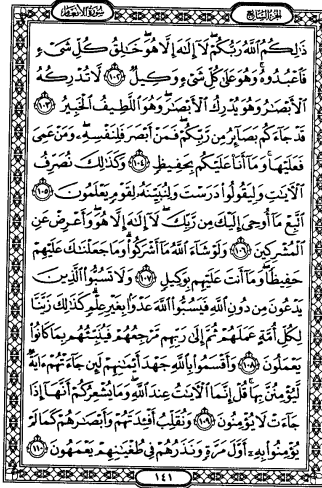 سُورَةُ الأَنْعَام
الجُزْءُ السَّابِع
ذَٰلِكُمُ ٱللَّهُ رَبُّكُمْ لَآ إِلَٰهَ إِلَّا هُوَ خَٰلِقُ كُلِّ شَىْءٍ
فَٱعْبُدُوهُ وَهُوَ عَلَىٰ كُلِّ شَىْءٍ وَكِيلٌ ١٠٢ لَّا تُدْرِكُهُ
ٱلْأَبْصَٰرُ وَهُوَ يُدْرِكُ ٱلْأَبْصَٰرَ وَهُوَ ٱللَّطِيفُ ٱلْخَبِيرُ ١٠٣
قَدْ جَآءَكُم بَصَآئِرُ مِن رَّبِّكُمْ فَمَنْ أَبْصَرَ فَلِنَفْسِهِۦ وَمَنْ عَمِىَ
فَعَلَيْهَا وَمَآ أَنَا۠ عَلَيْكُم بِحَفِيظٍ ١٠٤ وَكَذَٰلِكَ نُصَرِّفُ
ٱلْءَايَٰتِ وَلِيَقُولُوا۟ دَرَسْتَ وَلِنُبَيِّنَهُۥ لِقَوْمٍ يَعْلَمُونَ ١٠٥
ٱتَّبِعْ مَآ أُوحِىَ إِلَيْكَ مِن رَّبِّكَ لَآ إِلَٰهَ إِلَّا هُوَ وَأَعْرِضْ عَنِ
ٱلْمُشْرِكِينَ ١٠٦ وَلَوْ شَآءَ ٱللَّهُ مَآ أَشْرَكُوا۟ وَمَا جَعَلْنَٰكَ عَلَيْهِمْ
حَفِيظًا وَمَآ أَنتَ عَلَيْهِم بِوَكِيلٍ ١٠٧ وَلَا تَسُبُّوا۟ ٱلَّذِينَ
يَدْعُونَ مِن دُونِ ٱللَّهِ فَيَسُبُّوا۟ ٱللَّهَ عَدْوًۢا بِغَيْرِ عِلْمٍ كَذَٰلِكَ زَيَّنَّا
لِكُلِّ أُمَّةٍ عَمَلَهُمْ ثُمَّ إِلَىٰ رَبِّهِم مَّرْجِعُهُمْ فَيُنَبِّئُهُم بِمَا كَانُوا۟
يَعْمَلُونَ ١٠٨ وَأَقْسَمُوا۟ بِٱللَّهِ جَهْدَ أَيْمَٰنِهِمْ لَئِن جَآءَتْهُمْ ءَايَةٌ
لَّيُؤْمِنُنَّ بِهَا قُلْ إِنَّمَا ٱلْءَايَٰتُ عِندَ ٱللَّهِ وَمَا يُشْعِرُكُمْ أَنَّهَآ إِذَا
جَآءَتْ لَا يُؤْمِنُونَ ١٠٩ وَنُقَلِّبُ أَفْـِٔدَتَهُمْ وَأَبْصَٰرَهُمْ كَمَا لَمْ
يُؤْمِنُوا۟ بِهِۦٓ أَوَّلَ مَرَّةٍ وَنَذَرُهُمْ فِى طُغْيَٰنِهِمْ يَعْمَهُونَ ١١٠
١٤١